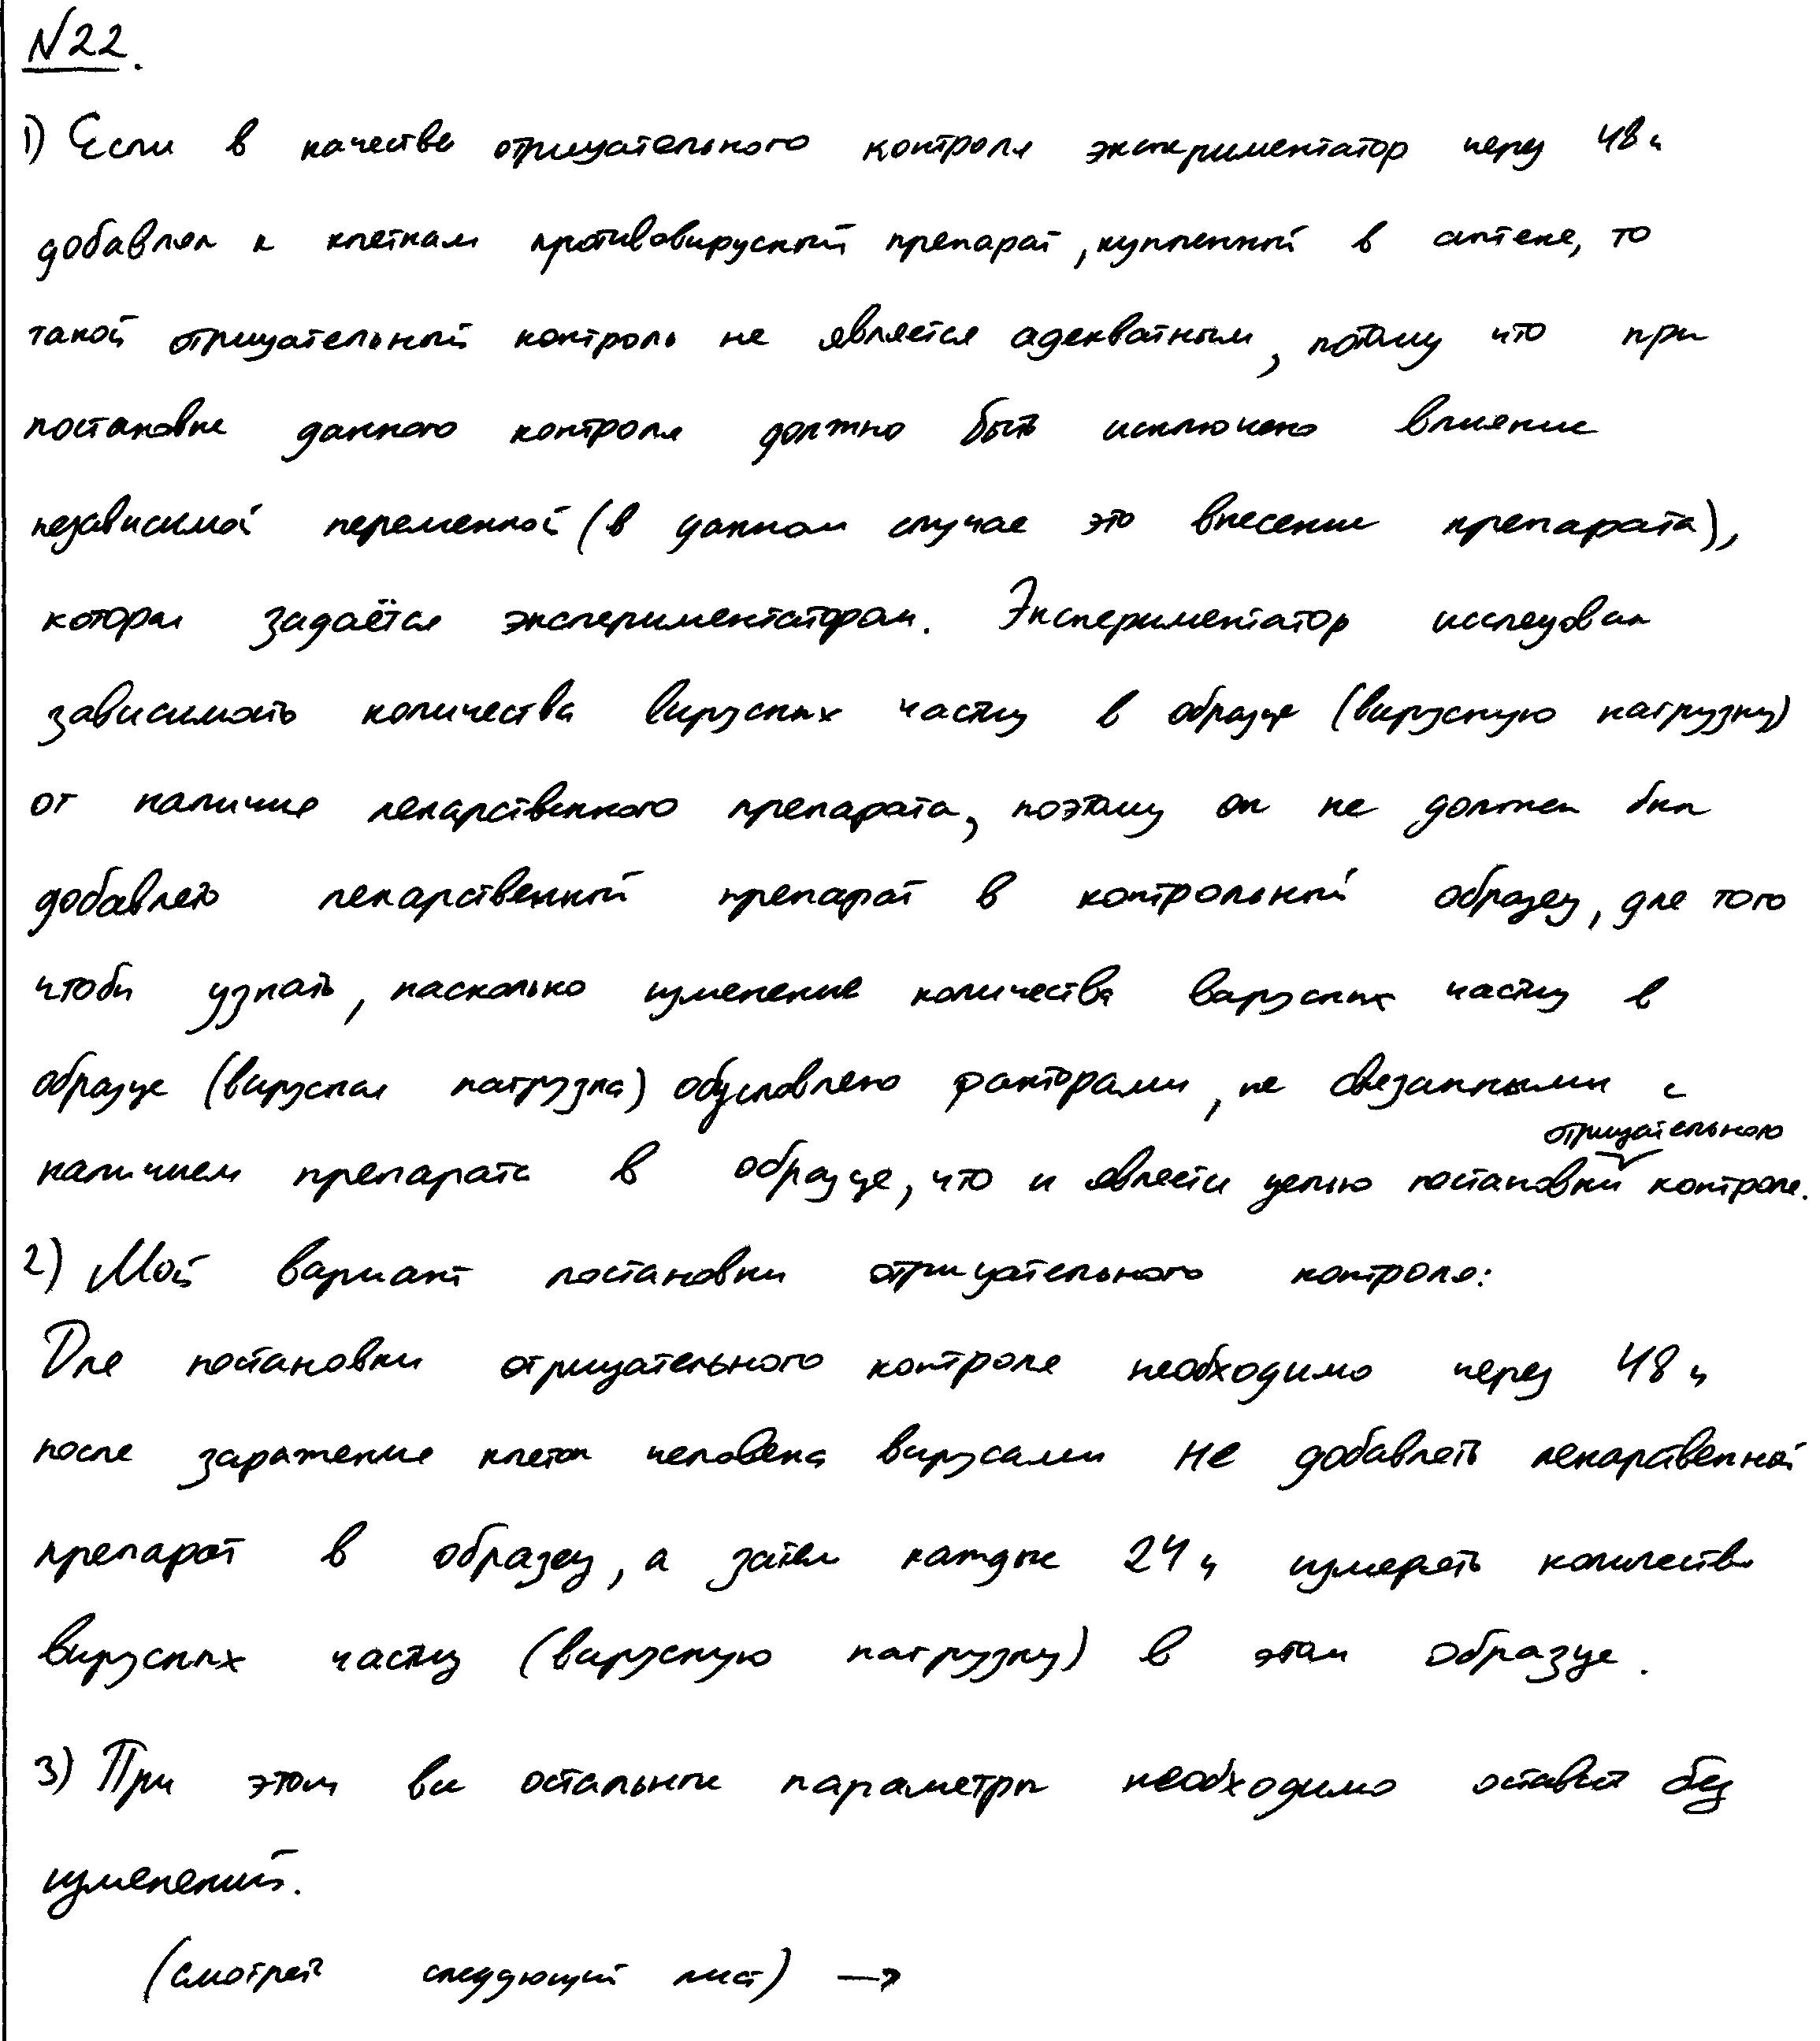 N22.
1) Если в качестве отрицательного контроля экспериментатор через 48 ч
добавлял к клеткам противовирусный препарат, купленный в аптеке, то
такой отрицательный контроль не является адекватным, потому что при
постановке данного контроля должно быть исключено влияние
независимой переменной (в данном случае это внесение препарата),
которая задаётся экспериментатором. Экспериментатор исследовал
зависимость количества вирусных частиц в образце (вирусную нагрузку)
от наличия лекарственного препарата, поэтому он не должен был
добавлять лекарственный препарат в контрольный образец, для того
чтобы узнать, насколько изменение количества вирусных частиц в
образце (вирусная нагрузка) обусловлено факторами, не связанными с
наличием препарата в образце, что и является целью постановки отрицательного контроля.
2) Мой вариант постановки отрицательного контроля:
Для постановки отрицательного контроля необходимо через 48 ч
после заражения клеток человека вирусами не добавлять лекарственный
препарат в образец, а затем каждые 24 ч измерять количество
вирусных частиц (вирусную нагрузку) в этом образце.
3) При этом все остальные параметры необходимо оставить без
изменений.
(смотреть следующий лист) →